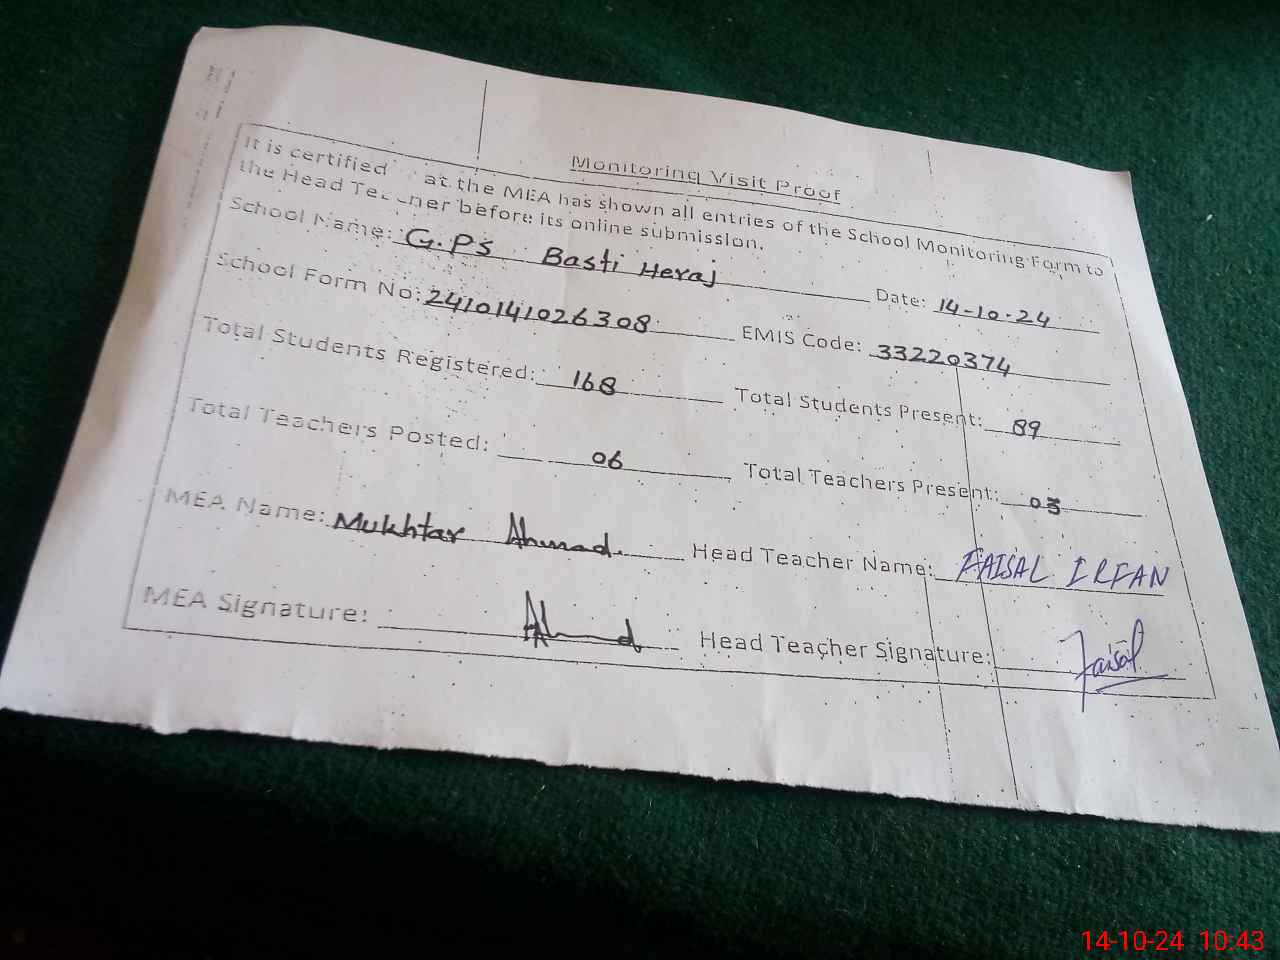 Monitoring Visit Proof
It is certified at the MEA has shown all entries of the School Monitoring Form to
the Head Teacher before its online submission.
School Name: G.PS Basti Heraj Date: 14-10-24
School Form No: 2410141026308 EMIS Code: 33220374
Total Students Registered: 168 Total Students Present: 89
Total Teachers Posted: 06 Total Teachers Present: 03
MEA Name: Mukhtar Ahmad. Head Teacher Name: FAISAL IRFAN
MEA Signature: Ahmad Head Teacher Signature: Faisal
14-10-24 10:43